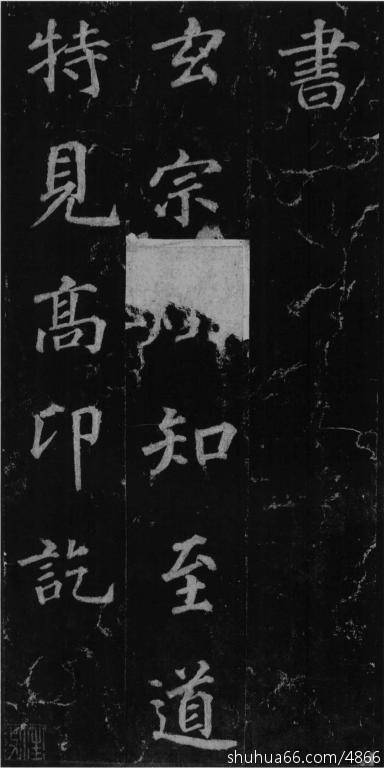 書
玄宗知至道
特見髙印訖
shuhua66.com/4866